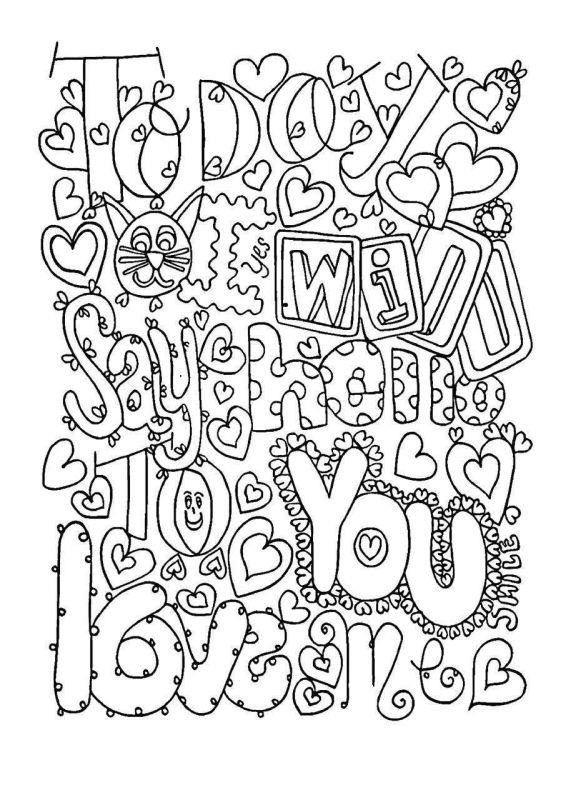 Today
I yes Will
Say hello
TO YOU
SMILE
love me